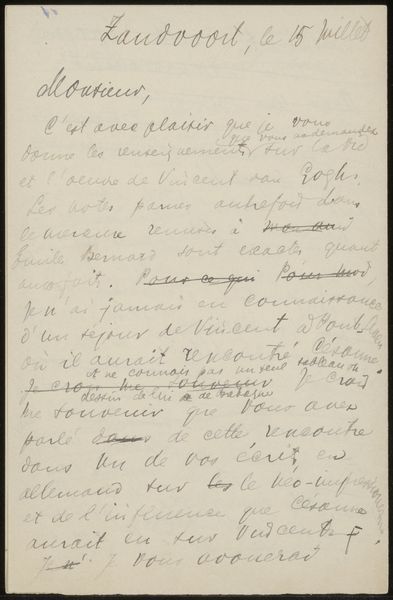 Zandvoort, le 15 Juillet
Monsieur,
C'est avec plaisir que je vous
que vous me demandez
donne les renseignements sur la vie
et l'oeuvre de Vincent van Gogh.
Les notes parues autrefois dans
le mercure remises à mon ami
Emile Bernard sont exactes quant
aux faits. Pour ce qui Pour moi,
Je n'ai jamais eu connaissance
d'un séjour de Vincent à
où il aurait rencontré Césanne
et ne connais pas un seul tableau ou
Je crois me souvenir Je crois
dessin de lui de
me souvenir que vous avez
parlé dans de cette rencontre
dans un de vos écrits en
allemand sur les le néo-impressionisme
et de l'influence que Césanne
aurait eu sur Vincent
Je n' Je vous avouerai